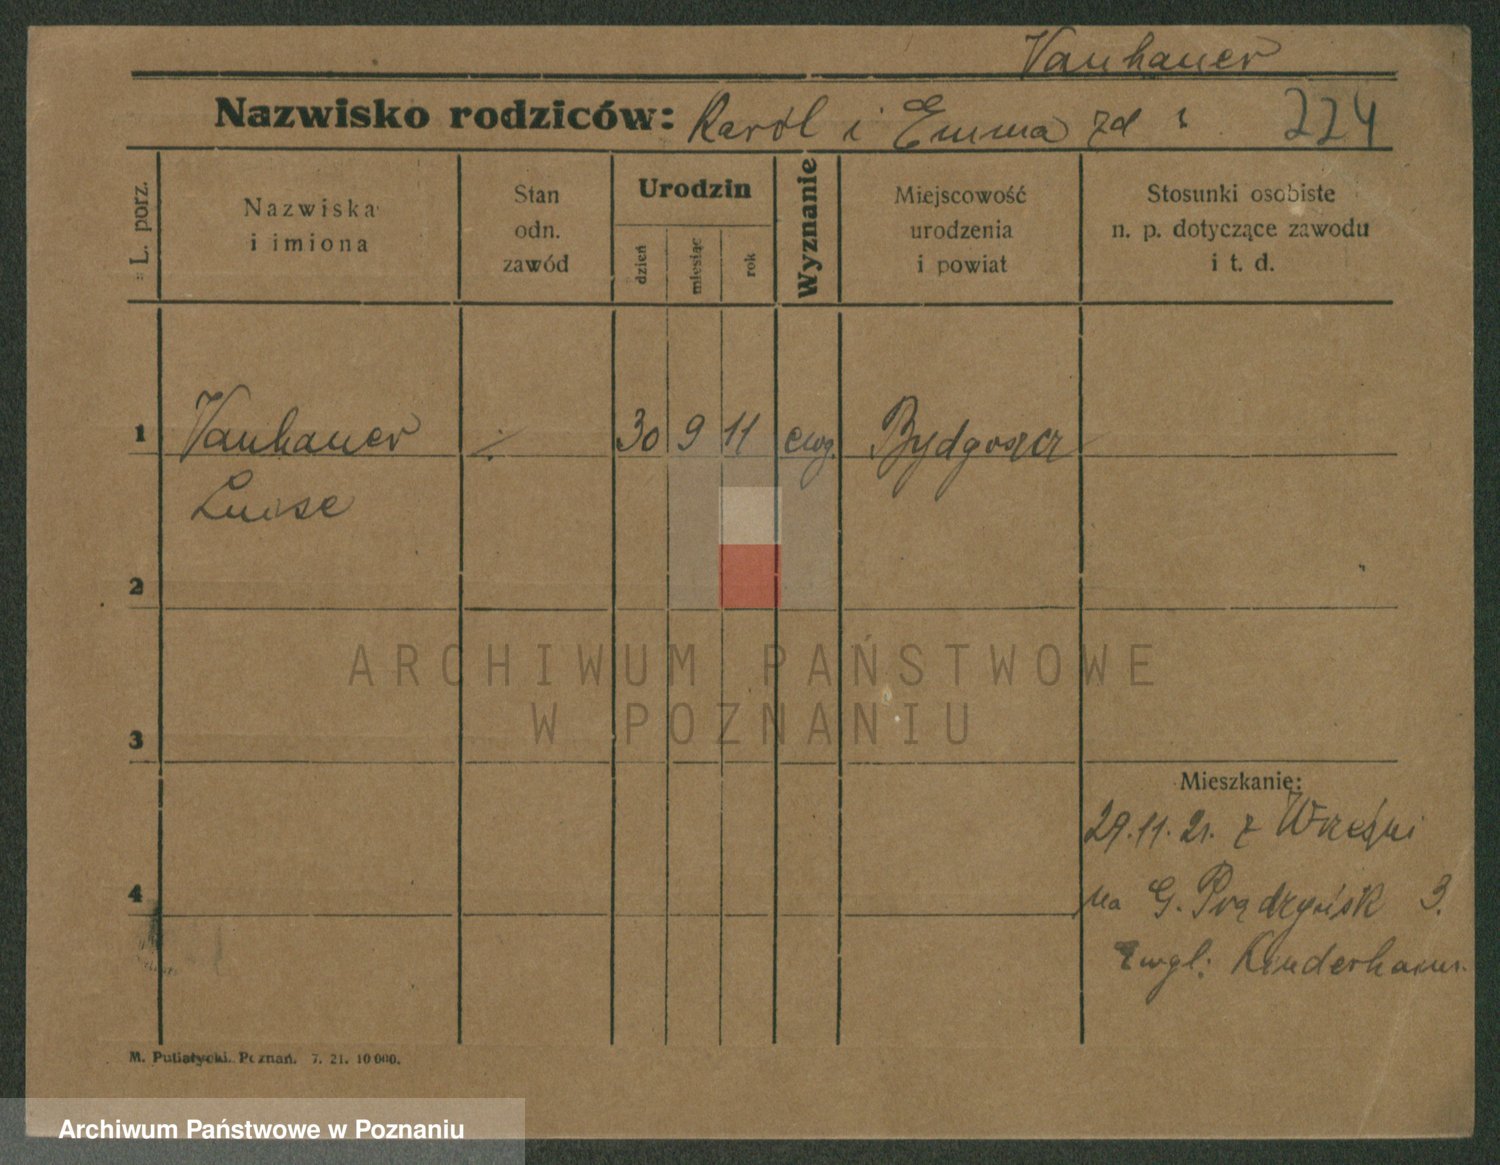 Vanhauer
Nazwisko rodziców: Karol i Emma zd ? 224
L. porz.
Nazwiska
i imiona
Stan
odn.
zawód
Urodzin
dzień
miesiąc
rok
Wyznanie
Miejscowość
urodzenia
i powiat
Stosunki osobiste
n. p. dotyczące zawodu
i t. d.
1 Vanhauer ./. 30 9 11 ewg. Bydgoszcz
Luise
2
ARCHIWUM PAŃSTWOWE
W POZNANIU
3
Mieszkanie:
29.11.21. z Wrześni
4
na G. Prądzyńsk 3.
Ewgl. Kinderhaus.
M. Putiatycki. Poznań. 7. 21. 10 000.
Archiwum Państwowe w Poznaniu